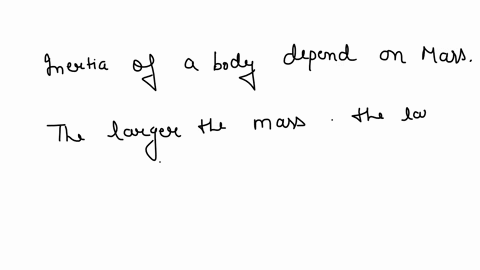 Inertia of a body depend on Mass.
The larger the mass . the la